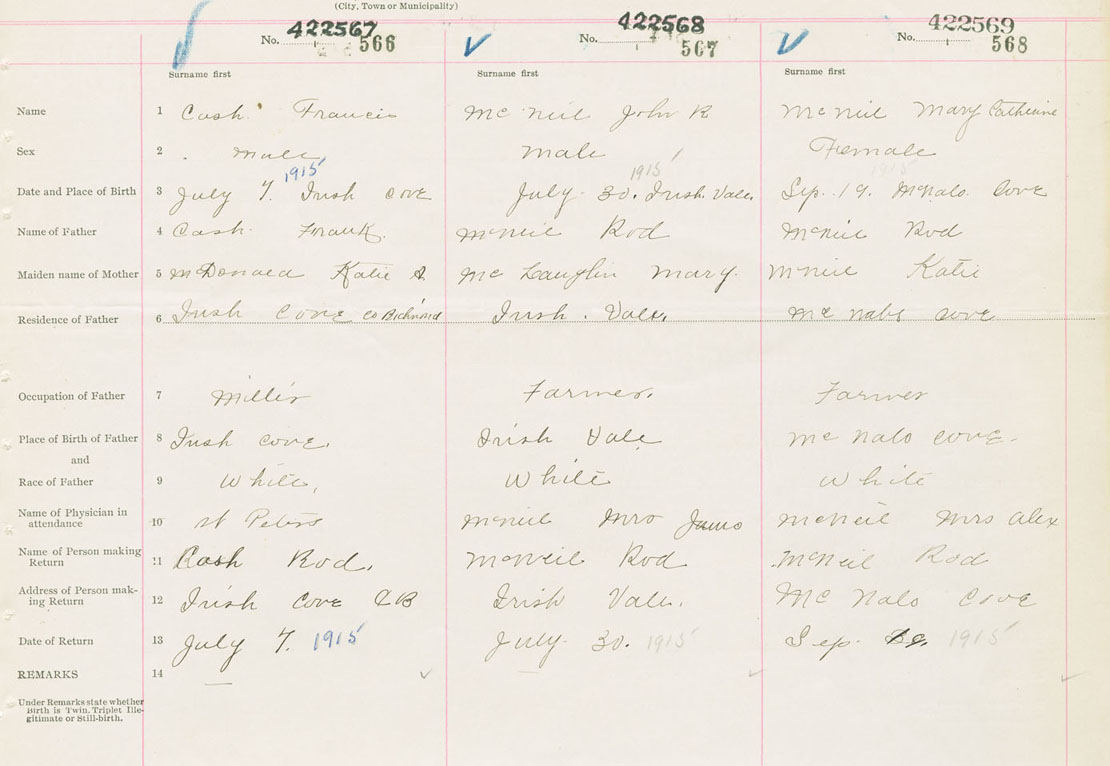 (City, Town or Municipality)
No. 422567 566 No. 422568 567 No. 422569 568
Surname first Surname first Surname first
Name 1 Cash Francis McNeil John R McNeil Mary Catherine
Sex 2 Male Male Female
1915 1915 1915
Date and Place of Birth 3 July 7. Irish Cove July 30. Irish Vale. Sep. 19. McNabs Cove
Name of Father 4 Cash Frank. McNeil Rod McNeil Rod
Maiden name of Mother 5 McDonald Katie A. McLauglin Mary. McNeil Katie
Residence of Father 6 Irish Cove Co Richmond Irish Vale. McNabs Cove
Occupation of Father 7 Farmer. Farmer
Place of Birth of Father 8 Irish Cove. Irish Vale McNabs Cove.
and
Race of Father 9 White, White White
Name of Physician in
attendance 10 St Peters McNeil Mrs McNeil Mrs Alex
Name of Person making
Return 11 Cash Rod. McNeil Rod McNeil Rod
Address of Person mak-
ing Return 12 Irish Cove CB Irish Vale. McNabs Cove
Date of Return 13 July 7. 1915 July. 30. 1915 Sep. 1915
REMARKS 14
Under Remarks state whether
Birth is Twin. Triplet Ille-
gitimate or Still-birth.